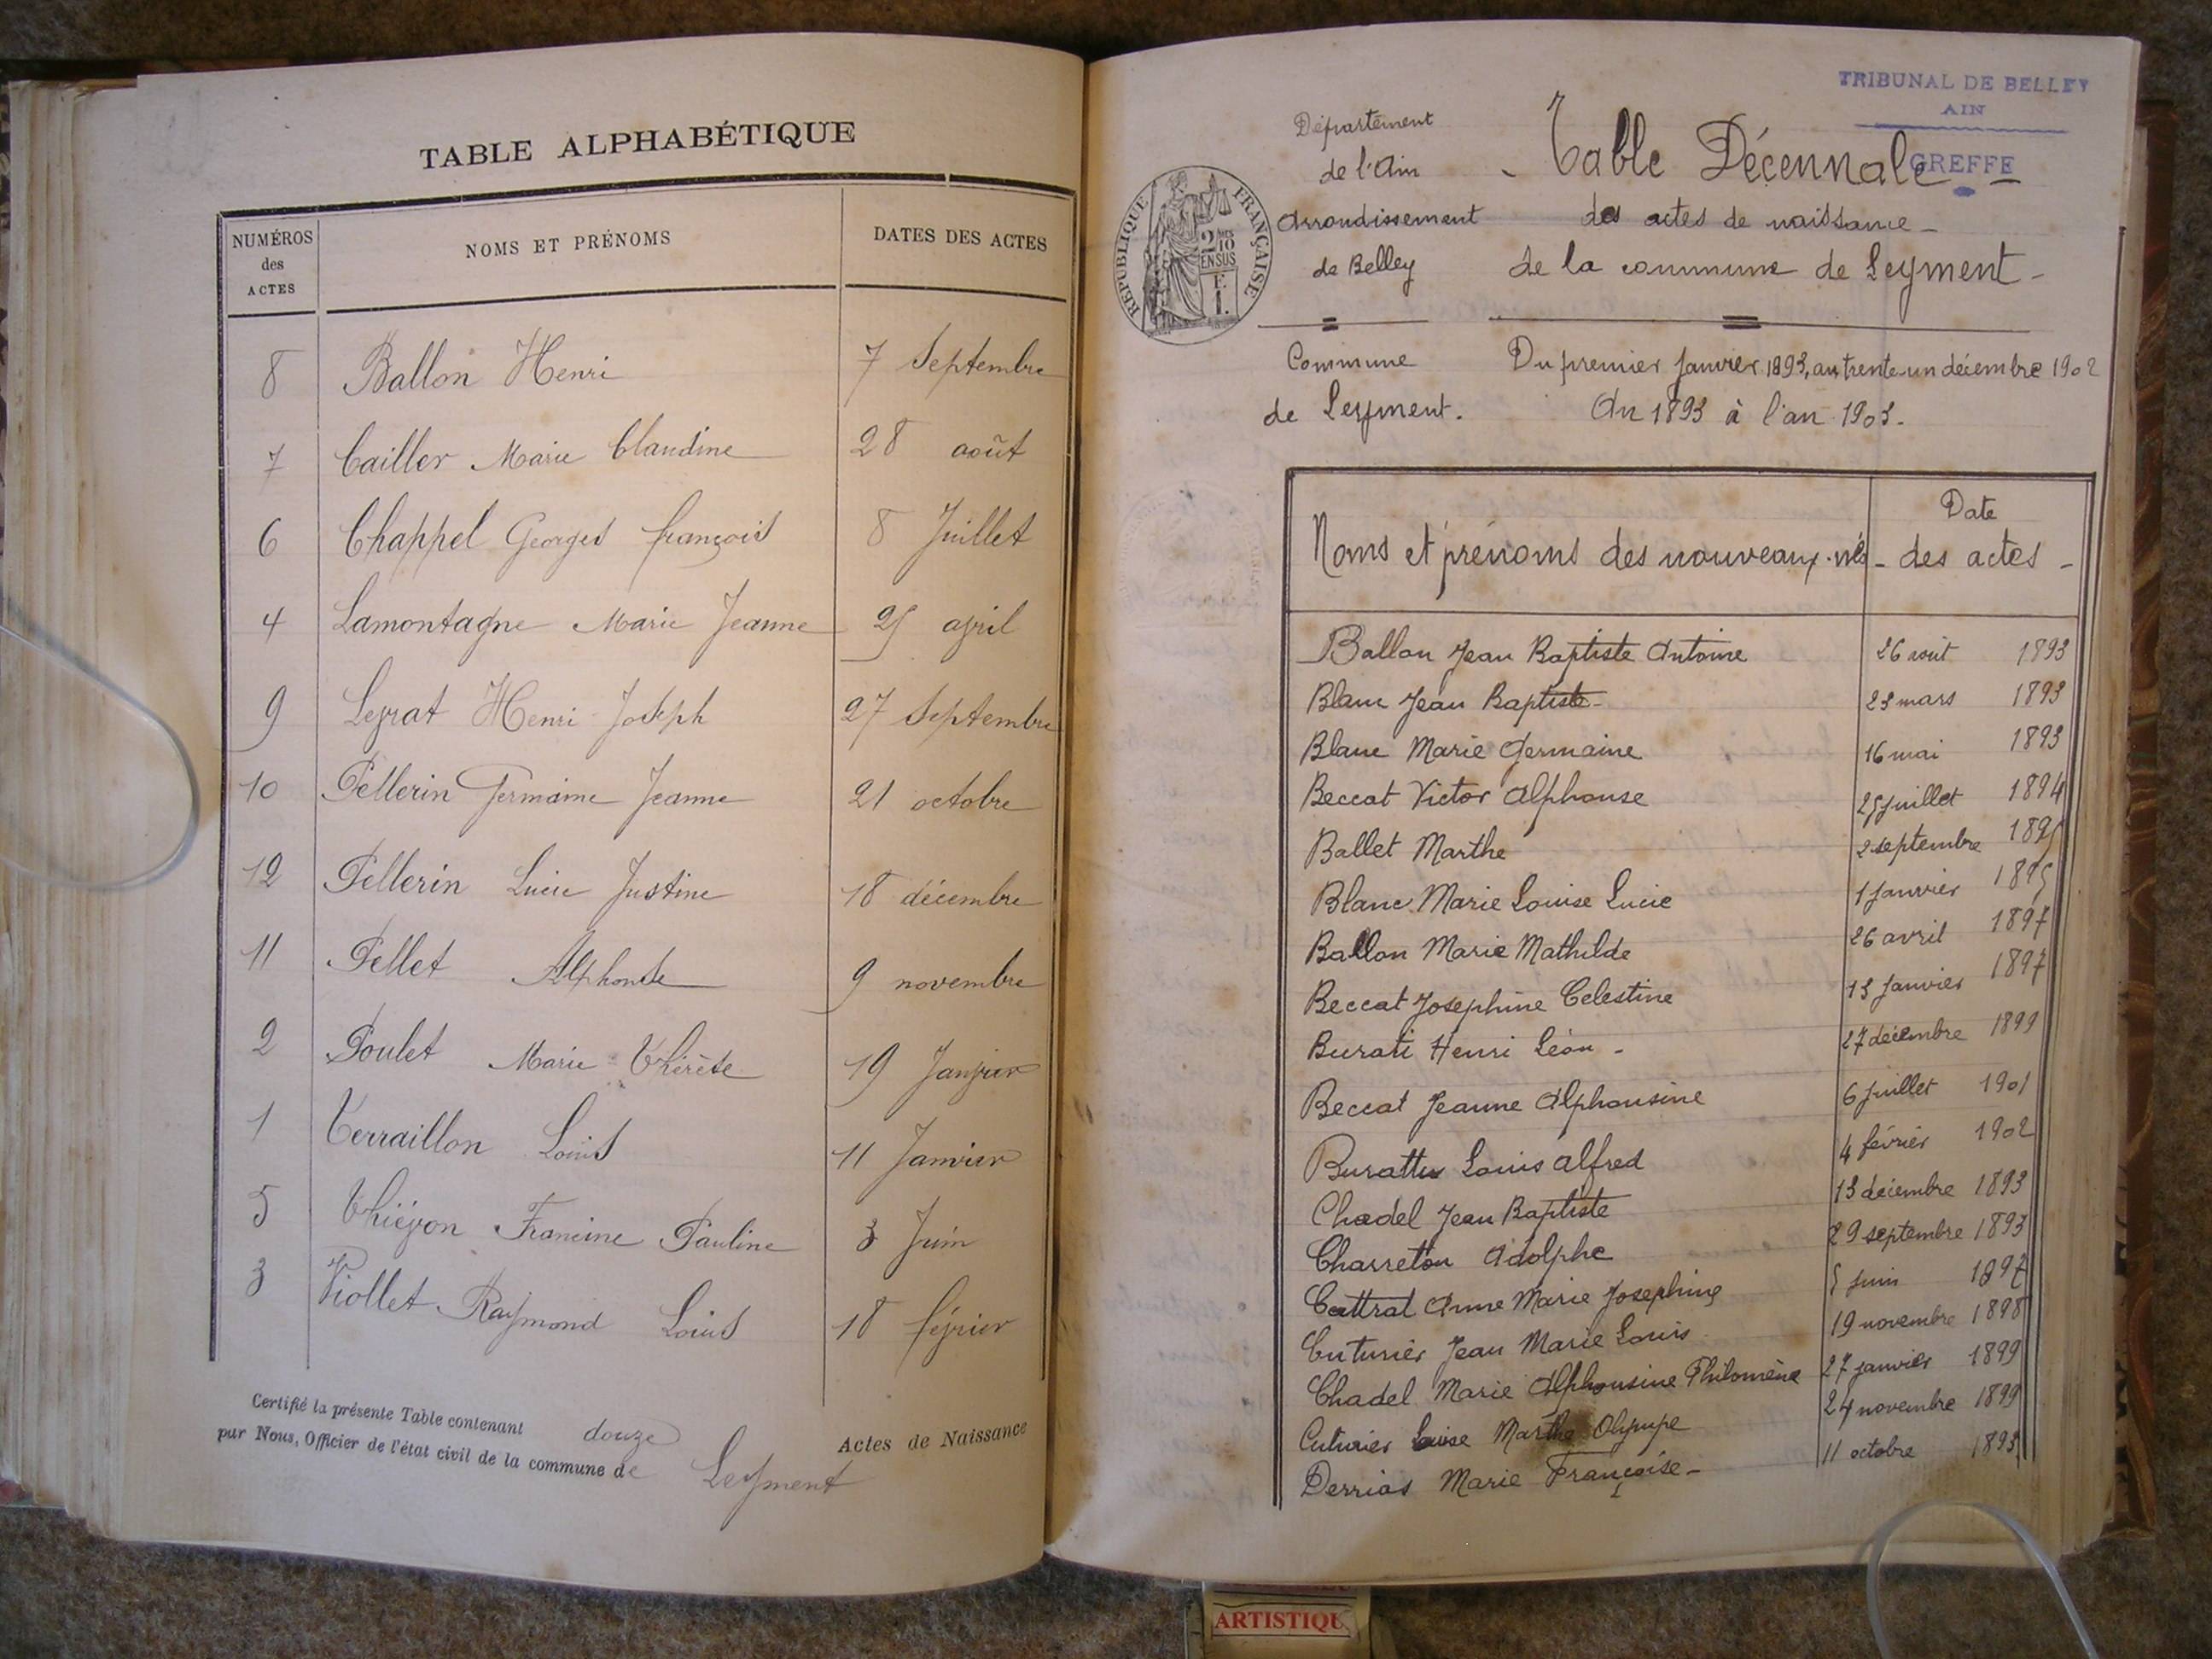 TABLE ALPHABÉTIQUE
NUMÉROS des ACTES NOMS ET PRÉNOMS DATES DES ACTES
8 Ballon Henri 7 Septembre
7 Cailler Marie Claudine 28 août
6 Chappel Georges françois 8 Juillet
4 Lamontagne Marie Jeanne 25 avril
9 Leyrat Henri Joseph 27 Septembre
10 Pellerin Germaine Jeanne 21 octobre
12 Pellerin Lucie Justine 18 décembre
11 Pellet Alphonse 9 novembre
2 Poulet Marie Thérèse 19 Janvier
1 Terraillon Louis 11 Janvier
5 Thiévon Francine Pauline 3 Juin
3 Viollet Raymond Louis 18 février
Certifié la présente Table contenant douze Actes de Naissance
par Nous, Officier de l'état civil de la commune de Leyment
TRIBUNAL DE BELLEY
AIN
GREFFE
RÉPUBLIQUE FRANÇAISE
2 10 EN SUS
Département
de l'Ain
Arrondissement
de Belley
Commune
de Leyment.
Table Décennale
des actes de naissance
de la commune de Leyment
Du premier Janvier 1893, au trente-un décembre 1902
An 1893 à l'an 1903.
Noms et prénoms des nouveaux-nés Date des actes
Ballon Jean Baptiste Antoine 26 août 1893
Blanc Jean Baptiste 23 mars 1893
Blanc Marie Germaine 16 mai 1893
Beccat Victor Alphonse 25 juillet 1894
Ballet Marthe 2 septembre 1895
Blanc Marie Louise Lucie 1 Janvier 1895
Ballon Marie Mathilde 26 avril 1897
Beccat Josephine Celestine 13 Janvier 1897
Burati Henri Léon 27 décembre 1899
Beccat Jeanne Alphonsine 6 Juillet 1901
Buratti Louis Alfred 4 février 1902
Chadel Jean Baptiste 13 décembre 1893
Charreton Adolphe 29 septembre 1893
Cattrat Anne Marie Josephine 5 Juin 1897
Cuturier Jean Marie Louis 19 novembre 1898
Chadel Marie Alphonsine Philomène 27 janvier 1899
Cuturier Louise Marthe Olympe 24 novembre 1899
Derrias Marie Françoise 11 octobre 1893
ARTISTIQU